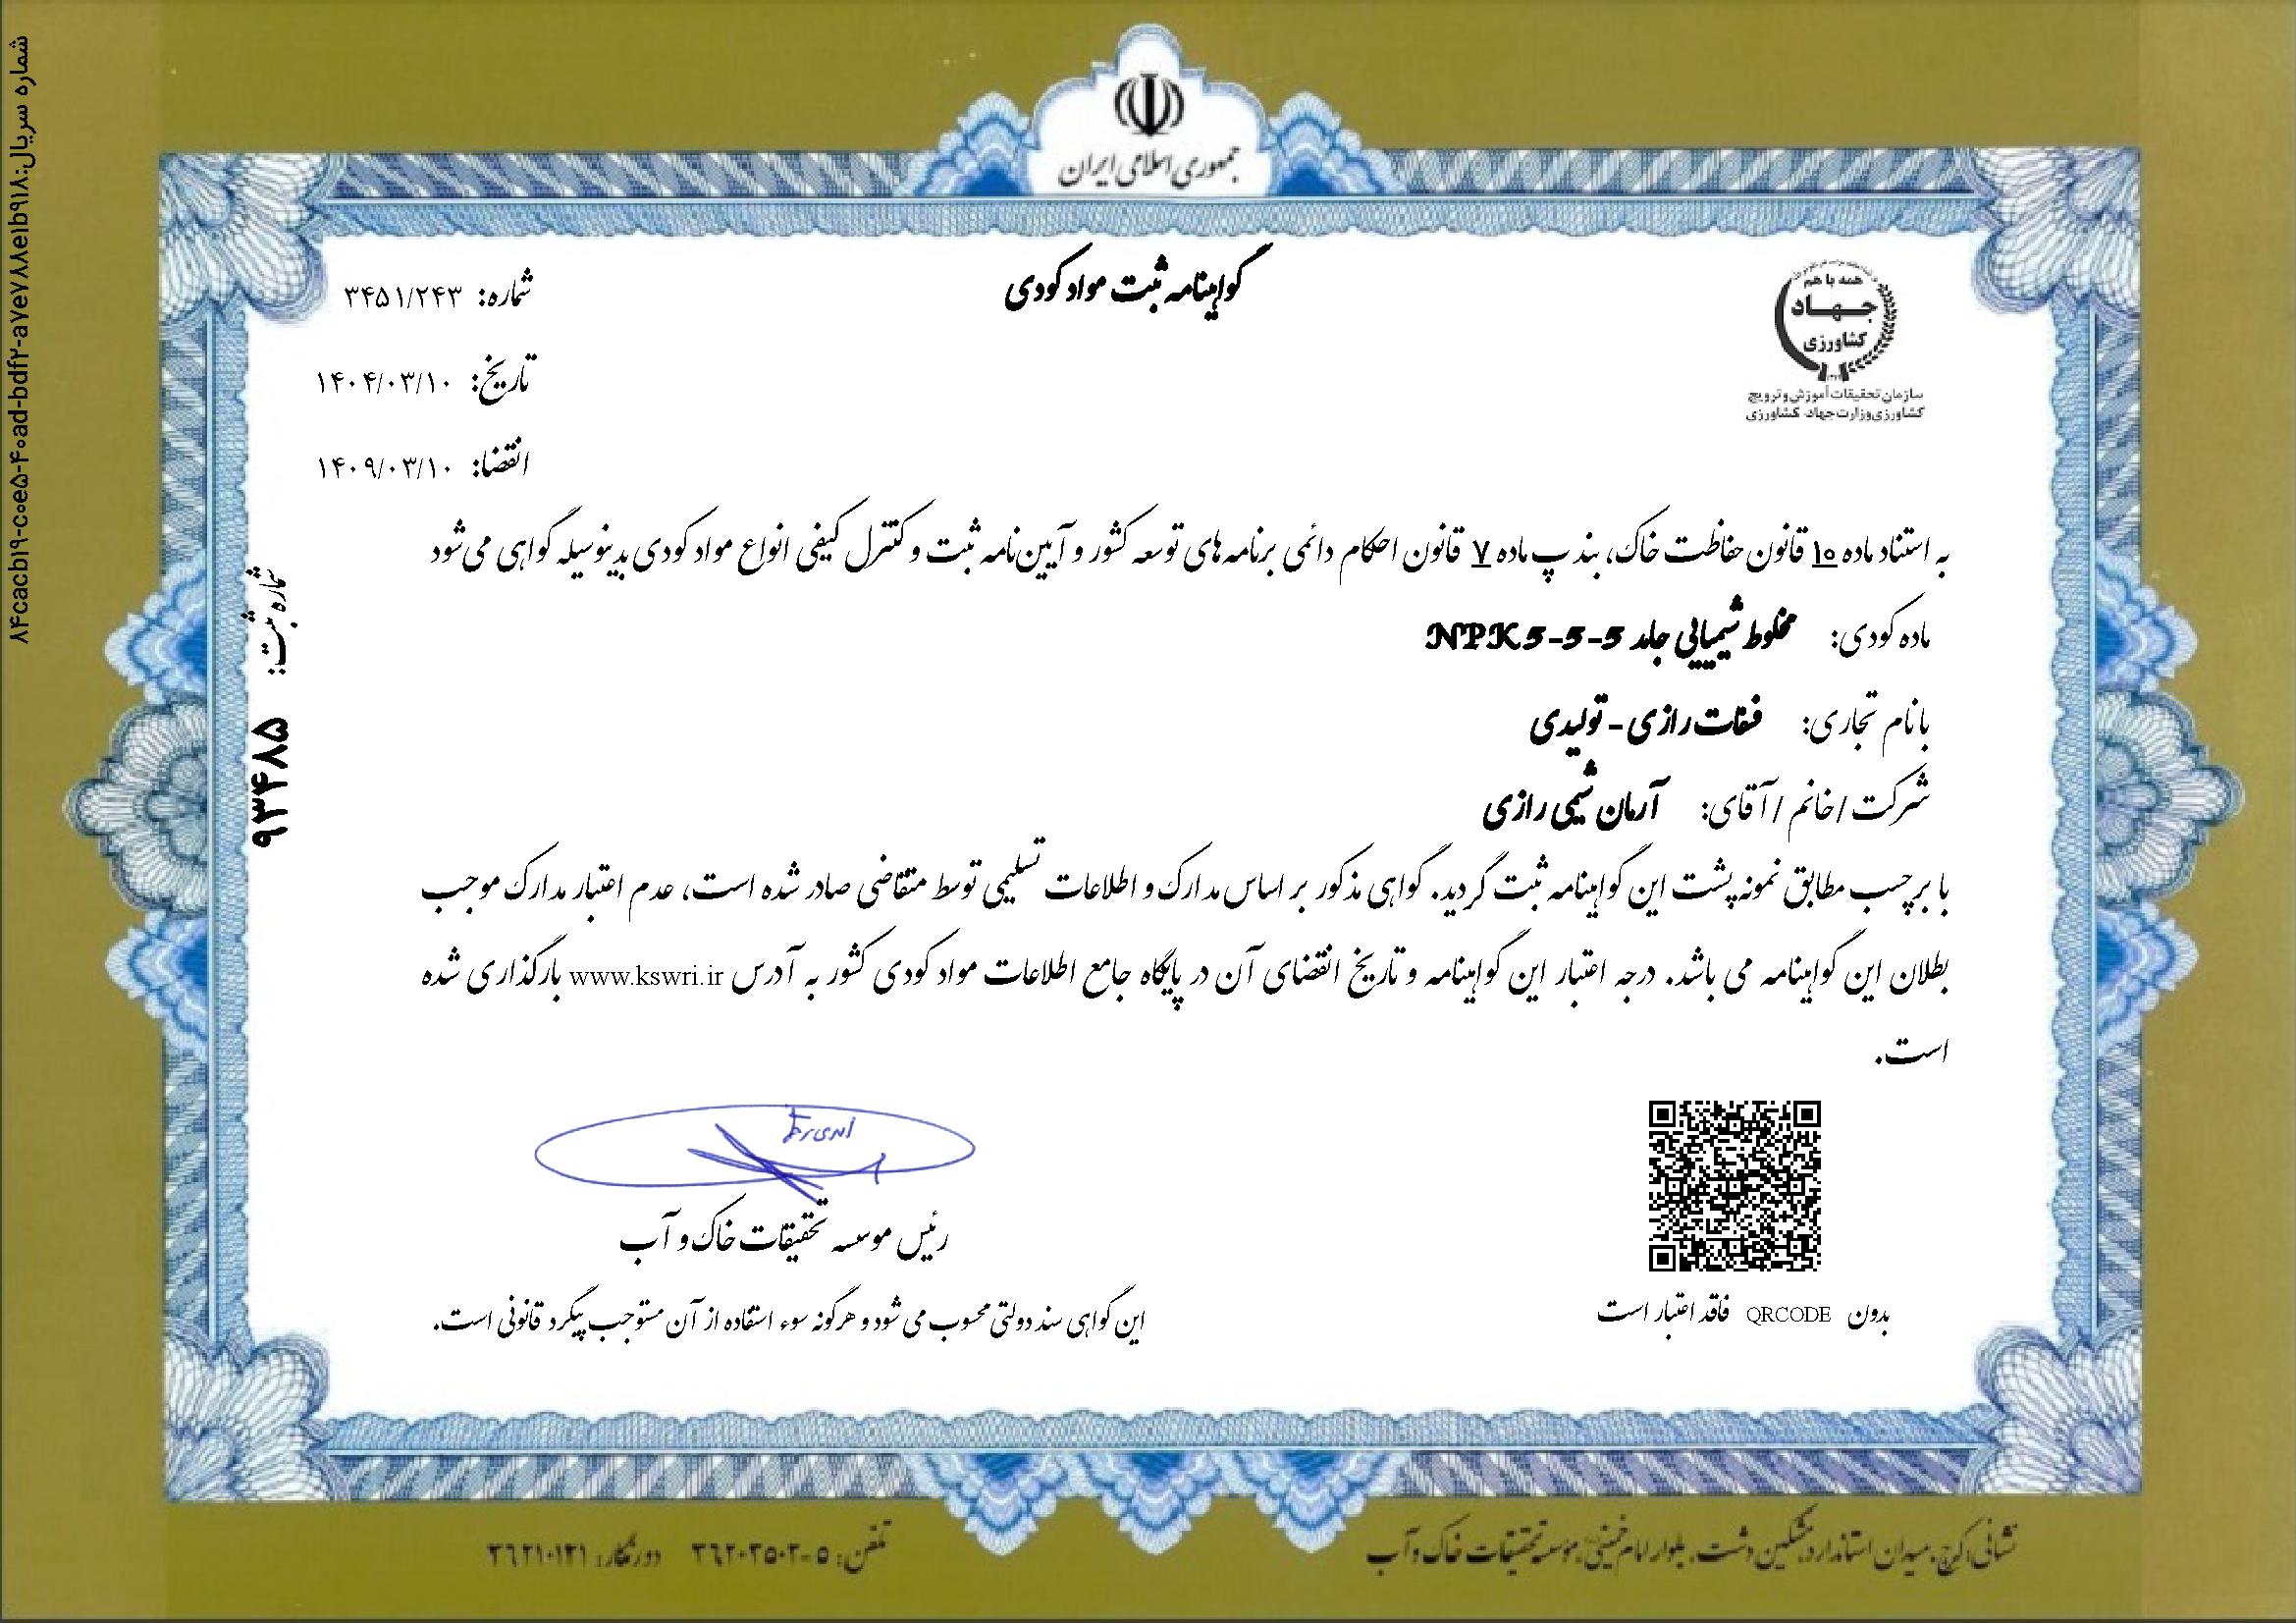 جمهوری اسلامی ایران
گواهینامه ثبت مواد کودی
همه با هم
جهاد
کشاورزی
سازمان تحقیقات آموزش و ترویج
کشاورزی وزارت جهاد کشاورزی
شماره: ۳۴۵۱/۲۴۳
تاریخ: ۱۴۰۴/۰۳/۱۰
انقضا: ۱۴۰۹/۰۳/۱۰
به استناد ماده ۱۰ قانون حفاظت خاک، بند پ ماده ۷ قانون احکام دائمی برنامه های توسعه کشور و آیین‌نامه ثبت و کنترل کیفی انواع مواد کودی بدینوسیله گواهی می‌شود
ماده کودی: مخلوط شیمیایی جامد NPK 5-5-5
با نام تجاری: فسفات رازی - تولیدی
شرکت / خانم / آقای: آرمان شیمی رازی
با برچسب مطابق نمونه پشت این گواهینامه ثبت گردید. گواهی مذکور بر اساس مدارک و اطلاعات تسلیمی توسط متقاضی صادر شده است، عدم اعتبار مدارک موجب
بطلان این گواهینامه می باشد. درجه اعتبار این گواهینامه و تاریخ انقضای آن در پایگاه جامع اطلاعات مواد کودی کشور به آدرس www.kswri.ir بارگذاری شده
است.
رئیس موسسه تحقیقات خاک و آب
این گواهی سند دولتی محسوب می شود و هرگونه سوء استفاده از آن مستوجب پیگرد قانونی است.
بدون QRCODE فاقد اعتبار است
شماره ثبت: ۹۳۴۸۵
شماره سریال:۸۴cacb۱۹-c۰e۵-۴۰ad-bdf۲-a۷e۷۸۸e۱b۹۱۸
نشانی: کرج، میدان استاندارد، مشکین دشت، بلوار امام خمینی، موسسه تحقیقات خاک و آب
تلفن: ۵-۳۶۲۰۲۵۰۲ دورنگار: ۳۶۲۱۰۱۲۱